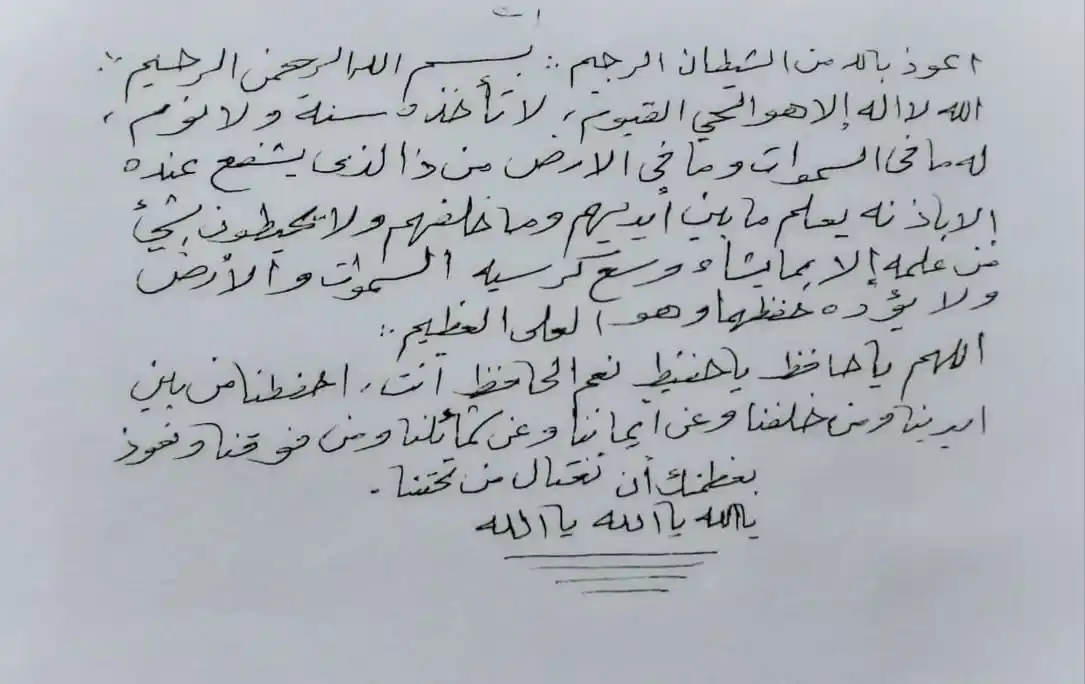 اعوذ بالله من الشيطان الرجيم ∴ بسم الله الرحمن الرحيم ∴
الله لا اله إلا هو الحي القيوم، لا تأخذه سنة ولا نوم،
له ما فى السموات وما فى الارض من ذا الذى يشفع عنده
الا باذنه يعلم ما بين أيديهم وما خلفهم ولا يحيطون بشئ
من علمه إلا بما يشاء وسع كرسيه السموات والأرض
ولا يؤده حفظهما وهو العلى العظيم ∴
اللهم يا حافظ يا حفيظ نعم الحافظ أنت، احفظنا من بين
ايدينا ومن خلفنا وعن أيماننا وعن شمائلنا ومن فوقنا ونعوذ
بعظمتك أن نغتال من تحتنا.
يا الله يا الله يا الله